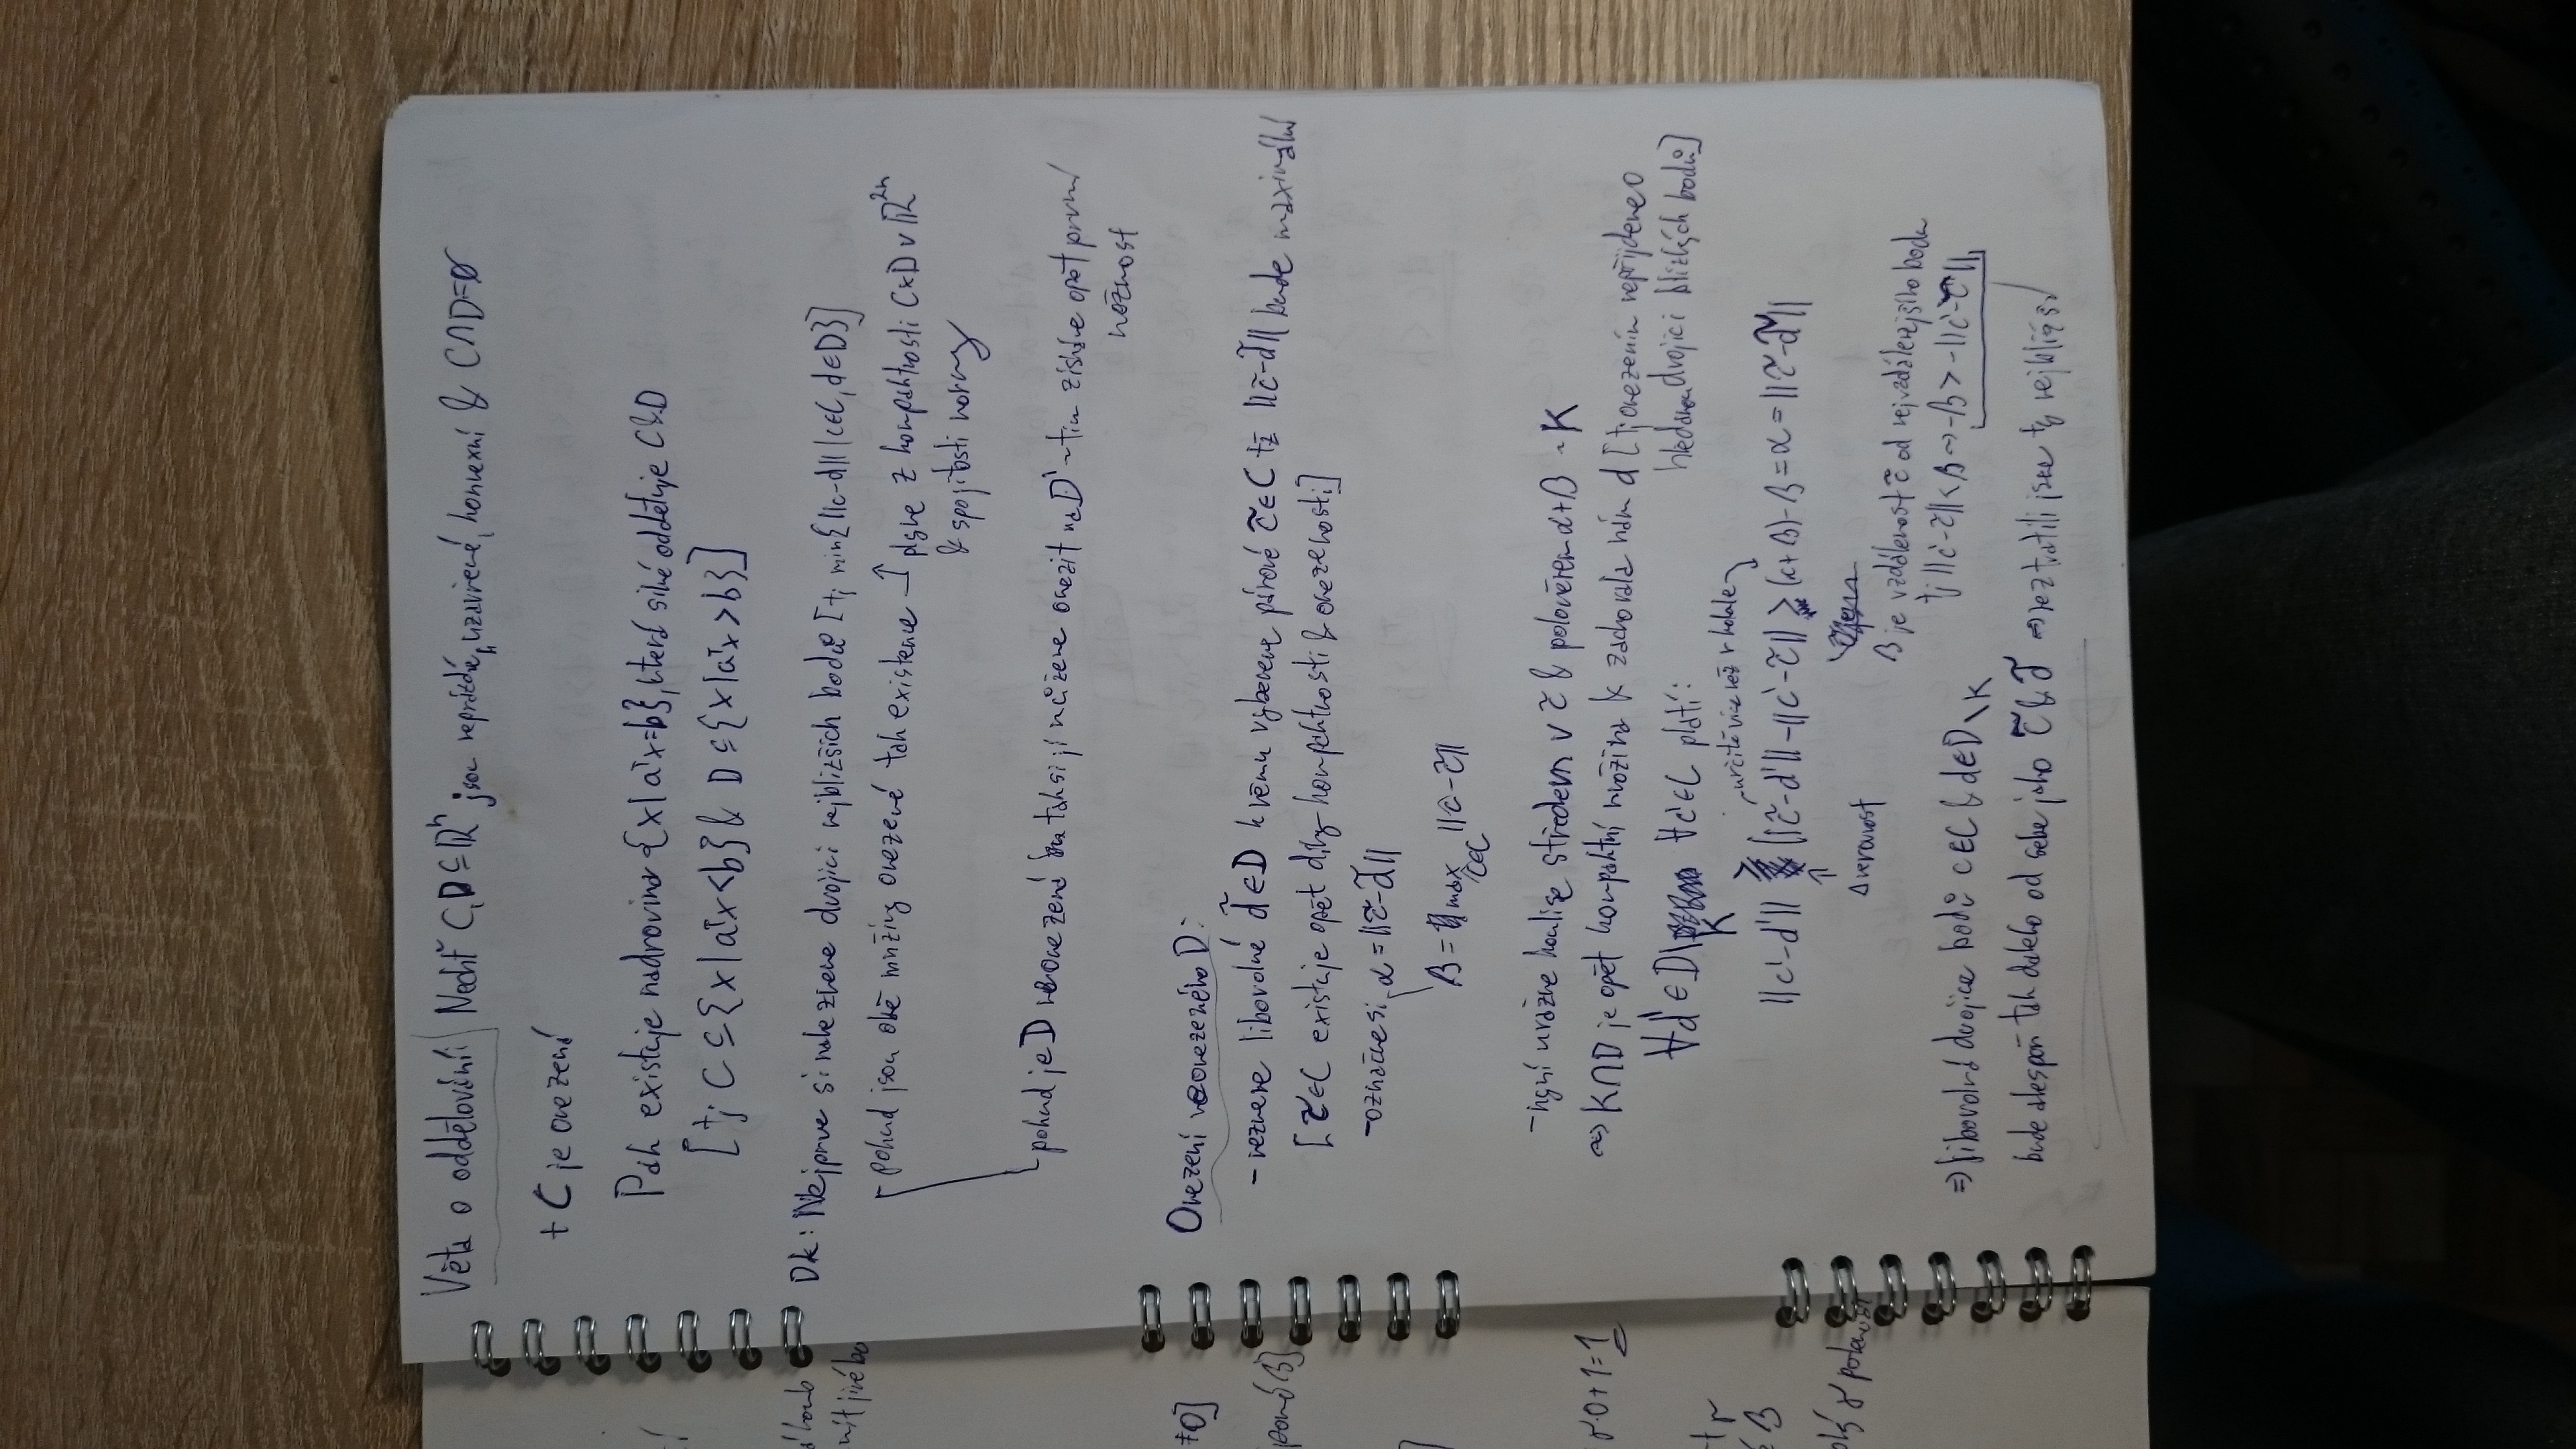 Věta o oddělování Nechť C, D ⊆ ℝⁿ jsou neprázdné, uzavřené, konvexní & C∩D=∅
+ C je omezená
Pak existuje nadrovina {x | aᵀx=b}, která silně odděluje C & D
[tj C ⊆ {x | aᵀx < b} & D ⊆ {x | aᵀx > b}]
Dk: Nejprve si nalezneme dvojici nejbližších bodů [tj min{||c-d|| | c∈C, d∈D}]
- pokud jsou obě množiny omezené tak existence → plyne z kompaktnosti C×D v ℝ²ⁿ
& spojitosti normy
- pokud je D neomezená tak si ji můžeme omezit na D' ~ tím získáme opět první
možnost
Omezení neomezeného D:
- vezmeme libovolné d̃∈D k němu vybereme párové c̃∈C tž ||c̃-d̃|| bude maximální
[c̃∈C existuje opět díky kompaktnosti & omezenosti]
- označme si α = ||c̃-d̃||
β = max c∈C ||c-c̃||
- nyní uvážme kouli se středem v c̃ & poloměrem α+β ~ K
⇝ K∩D je opět kompaktní množina & zachovala nám d [tj omezením nepřijdeme o
hledanou dvojici blízkých bodů]
∀d'∈D\K ∀c'∈C platí:
určitě více než v kouli
||c'-d'|| ≥ ||c̃-d'|| - ||c'-c̃|| > (α+β)-β = α = ||c̃-d̃||
↑
Δ nerovnost
β je vzdálenost c̃ od nejvzdálenějšího bodu
tj ||c'-c̃|| < β ⇝ -β > -||c'-c̃||
⇒ libovolná dvojice bodů c∈C & d∈D\K
bude alespoň tak daleko od sebe jako c̃ & d̃ ⇒ neztratili jsme ty nejbližší
≠0]
σ·0+1=1